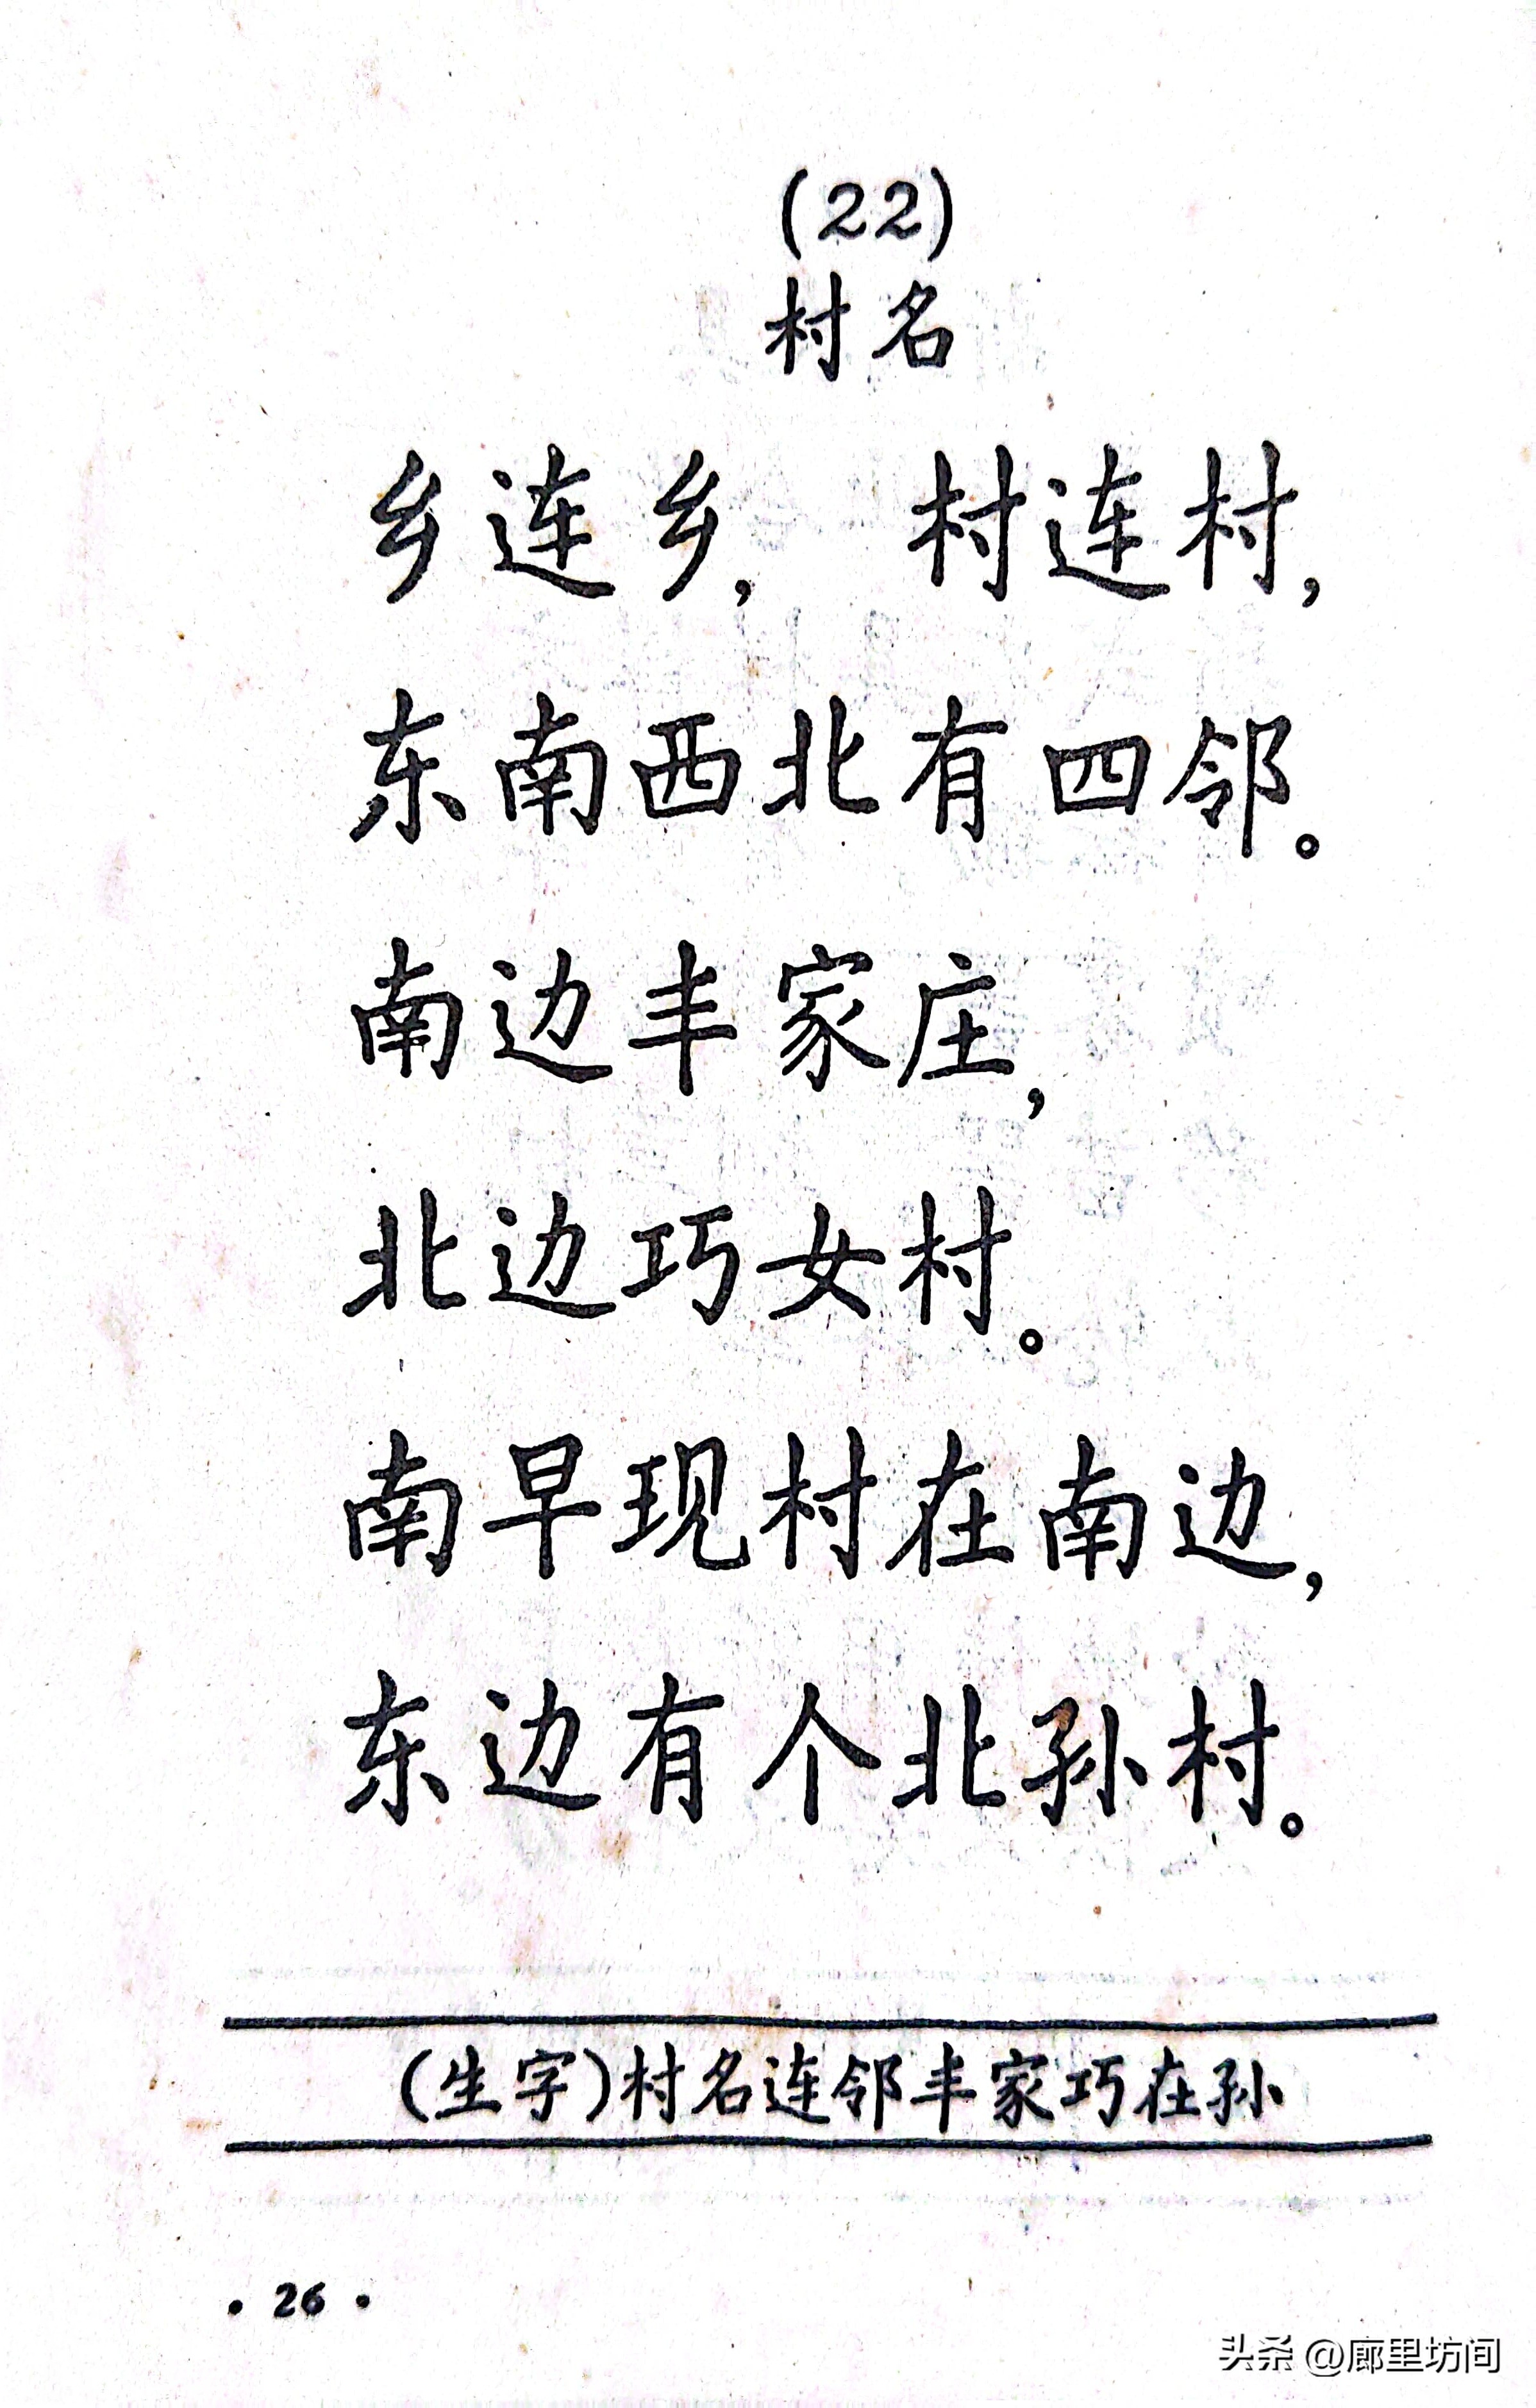 (22)
村名
乡连乡，村连村，
东南西北有四邻。
南边丰家庄，
北边巧女村。
南早现村在南边，
东边有个北孙村。
(生字)村名连邻丰家巧在孙
·26·
头条@廊里坊间